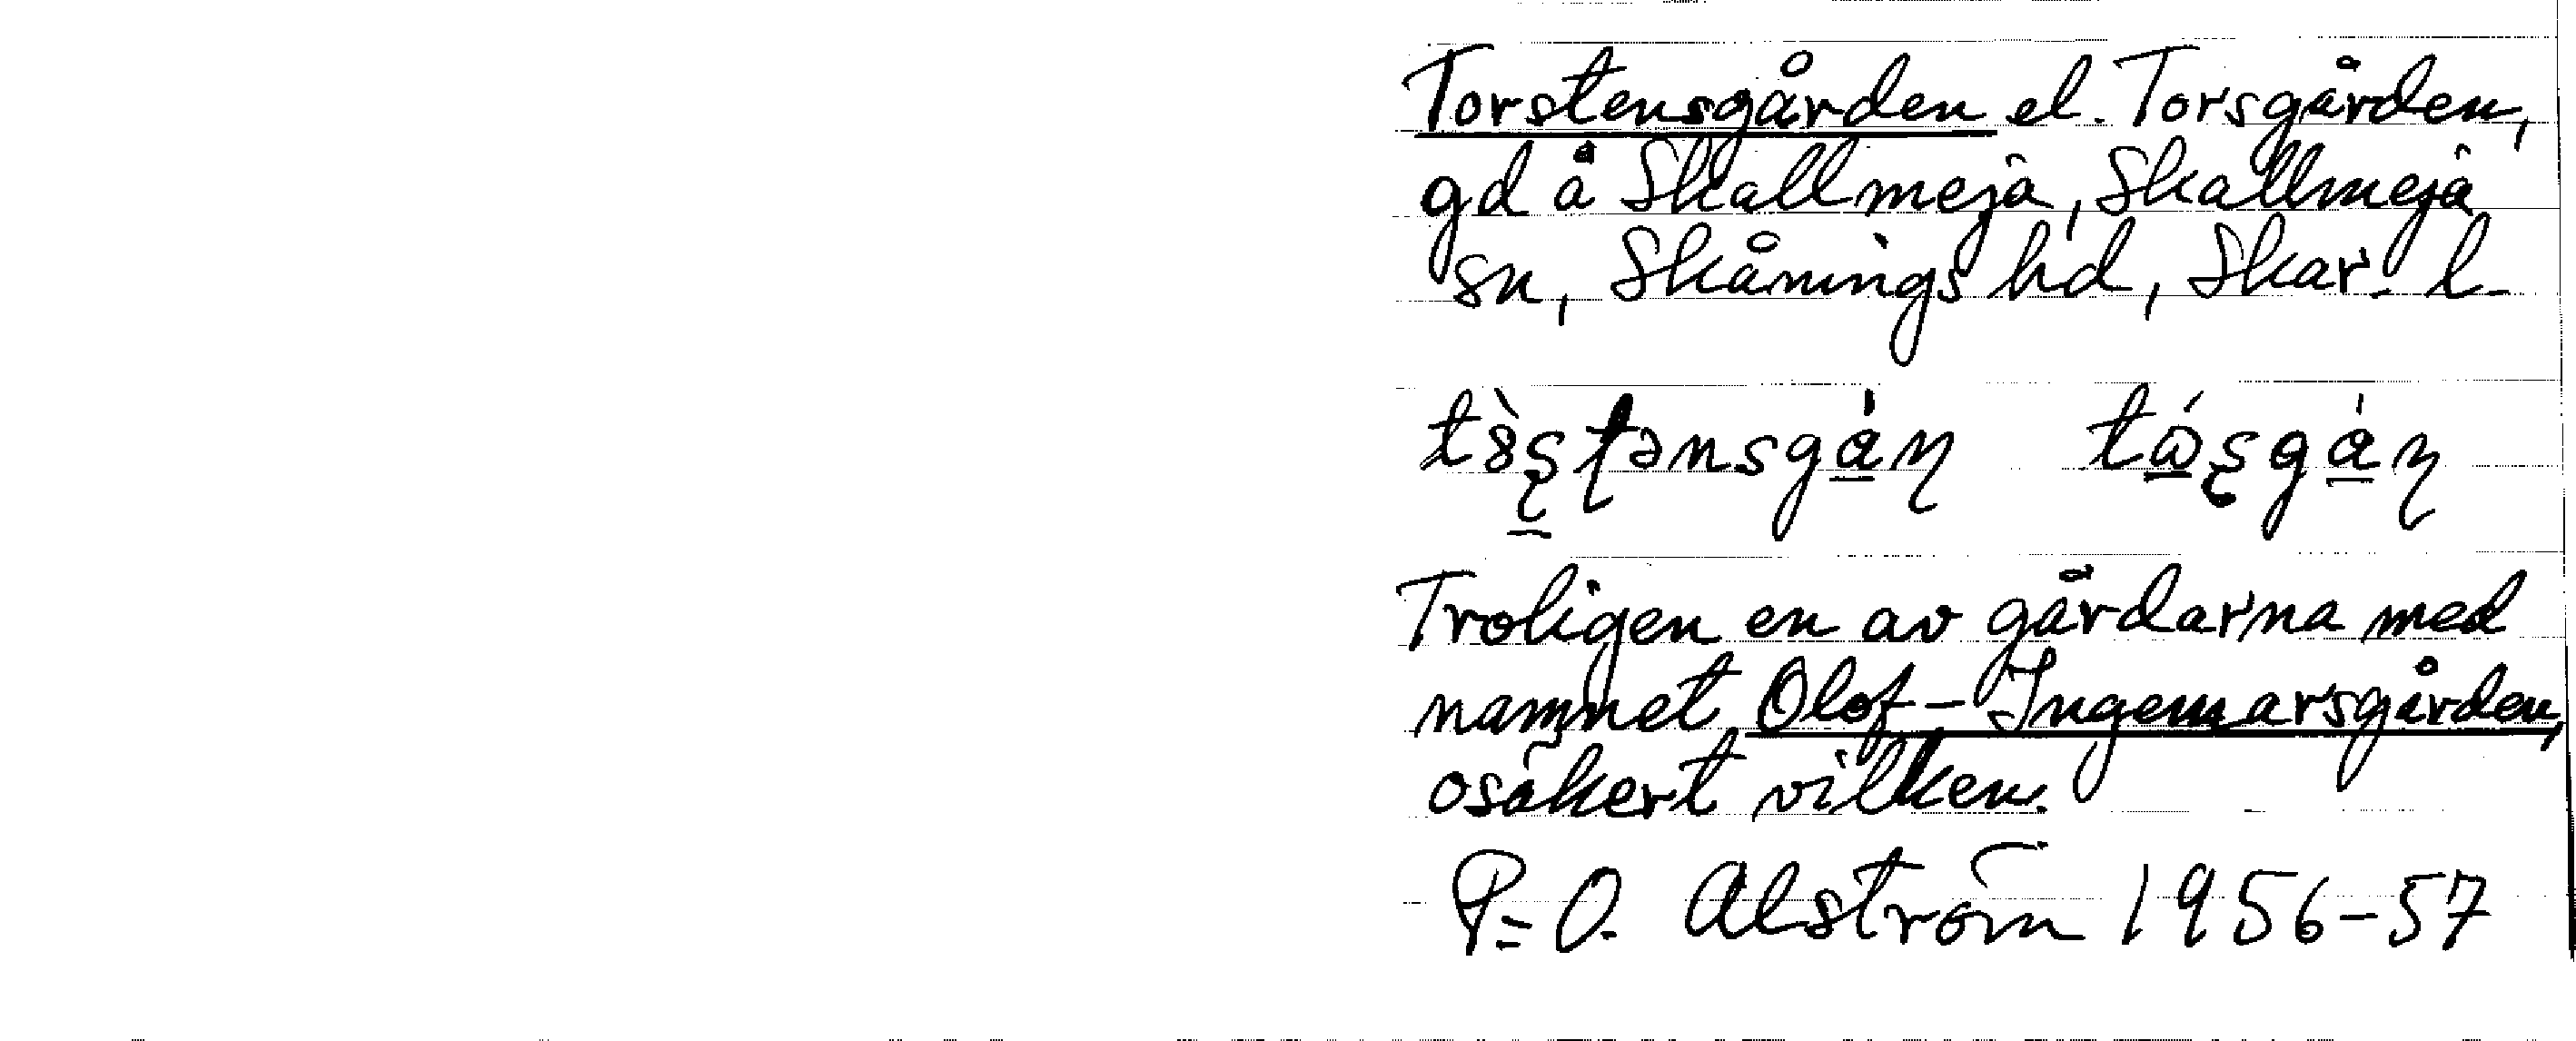 Torstensgården el. Torsgården,
gd å Skallmeja, Skallmeja
sn, Skånings hd, Skar. l.
Troligen en av gårdarna med
namnet Olof-Ingemarsgården,
osäkert vilken.
P.-O. Alström 1956-57